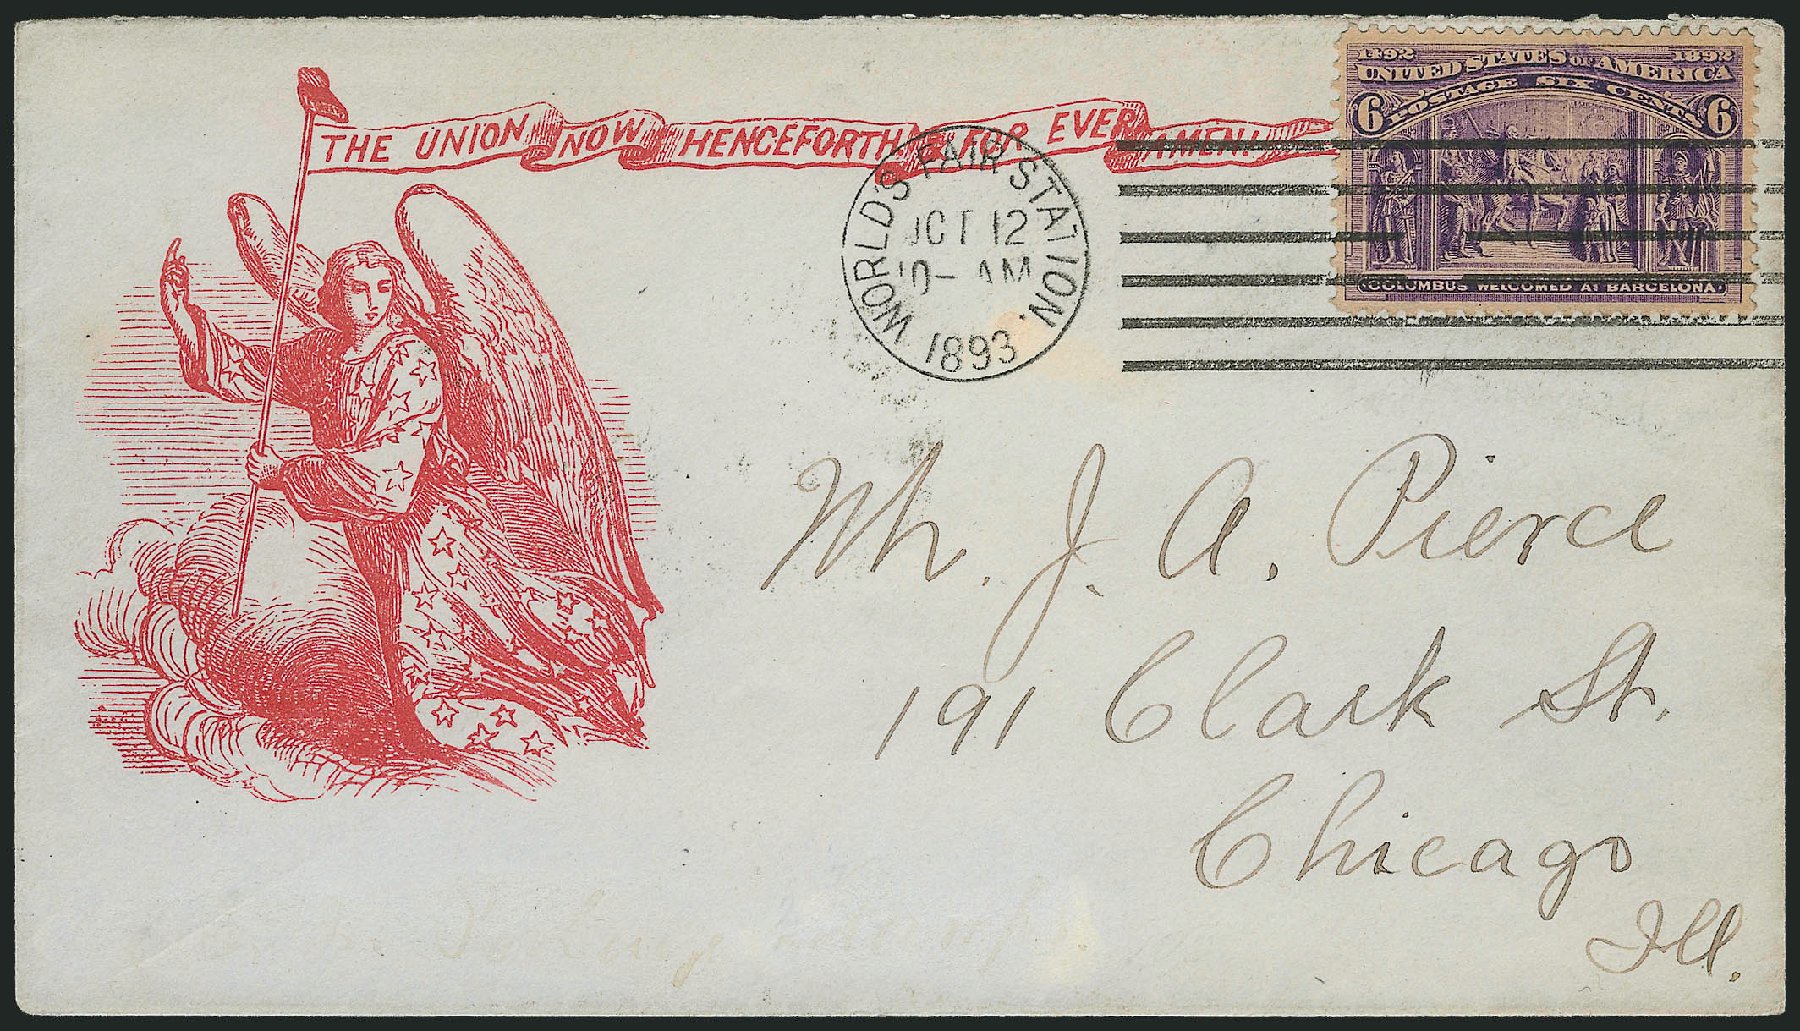 THE UNION NOW HENCEFORTH & FOR EVER AMEN!
1492 1892
UNITED STATES OF AMERICA
POSTAGE SIX CENTS
6 6
COLUMBUS WELCOMED AT BARCELONA.
WORLD'S FAIR STATION.
OCT 12
10- AM
1893
Mr. J. A. Pierce
191 Clark St.
Chicago
Ill.